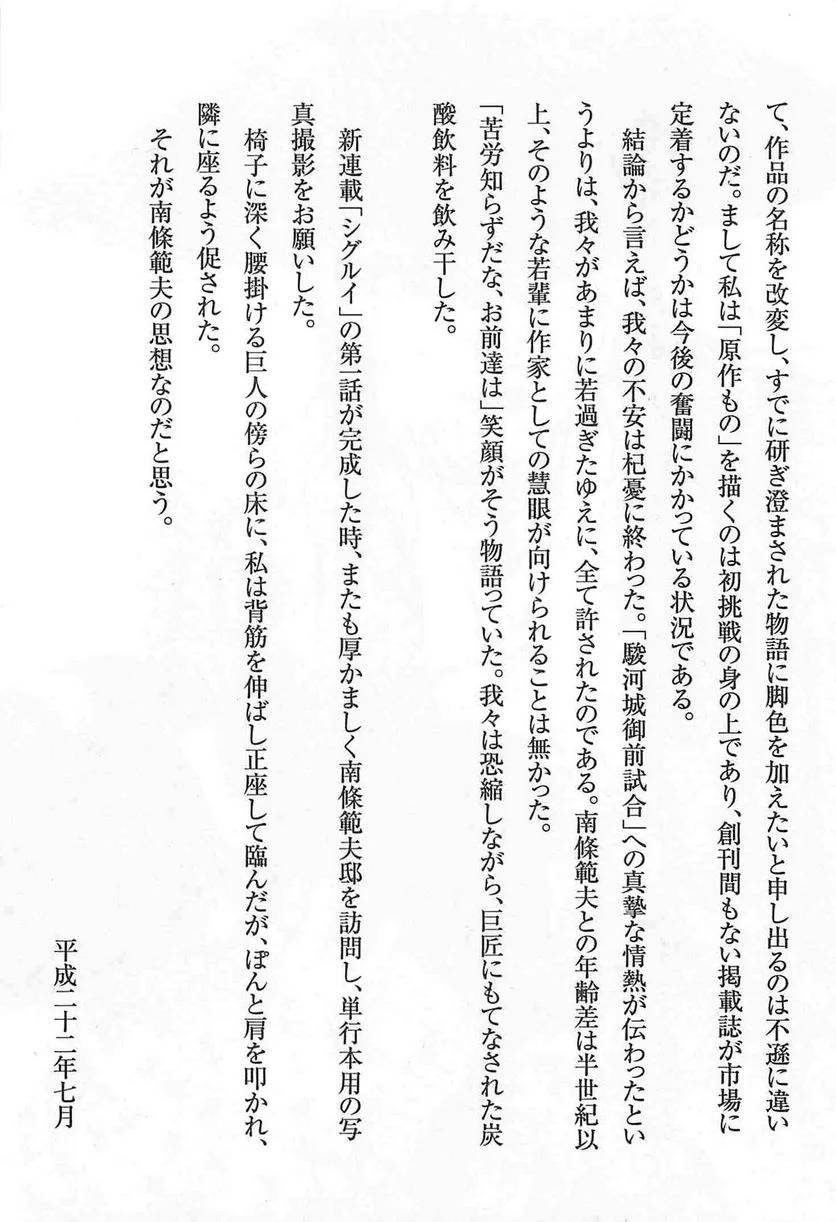 て、作品の名称を改変し、すでに研ぎ澄まされた物語に脚色を加えたいと申し出るのは不遜に違い
ないのだ。まして私は「原作もの」を描くのは初挑戦の身の上であり、創刊間もない掲載誌が市場に
定着するかどうかは今後の奮闘にかかっている状況である。
結論から言えば、我々の不安は杞憂に終わった。「駿河城御前試合」への真摯な情熱が伝わったとい
うよりは、我々があまりに若過ぎたゆえに、全て許されたのである。南條範夫との年齢差は半世紀以
上、そのような若輩に作家としての慧眼が向けられることは無かった。
「苦労知らずだな、お前達は」笑顔がそう物語っていた。我々は恐縮しながら、巨匠にもてなされた炭
酸飲料を飲み干した。
新連載「シグルイ」の第一話が完成した時、またも厚かましく南條範夫邸を訪問し、単行本用の写
真撮影をお願いした。
椅子に深く腰掛ける巨人の傍らの床に、私は背筋を伸ばし正座して臨んだが、ぽんと肩を叩かれ、
隣に座るよう促された。
それが南條範夫の思想なのだと思う。
平成二十二年七月